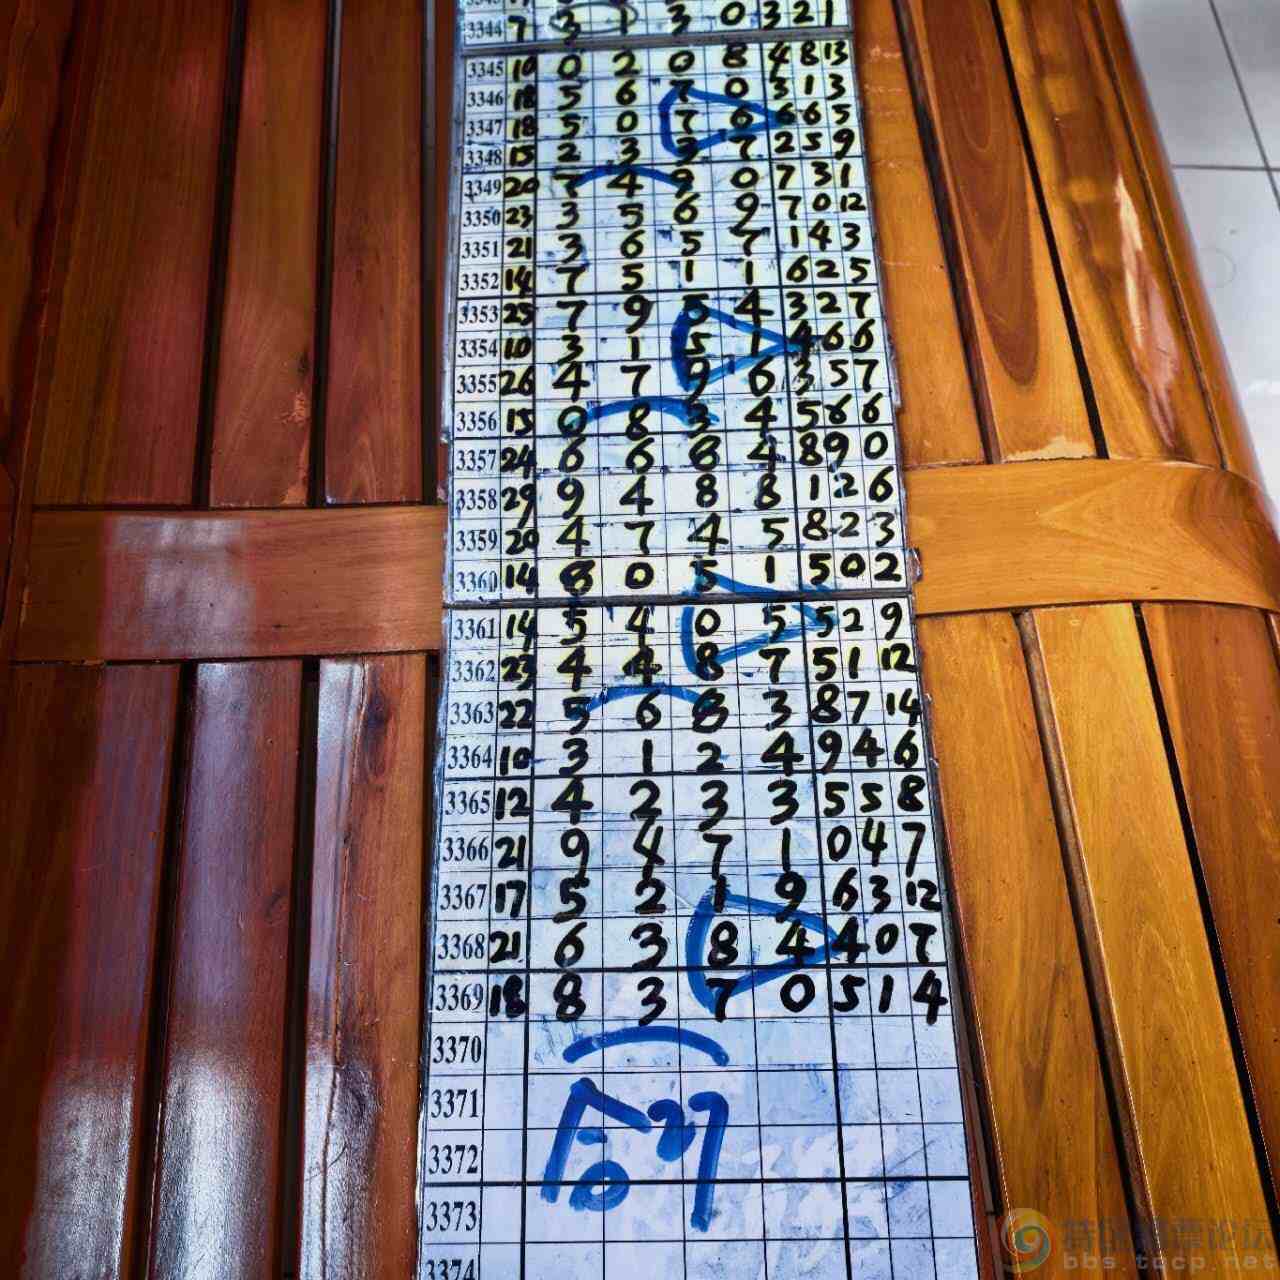 3344 7 3 1 3 0 3 2 1
3345 10 0 2 0 8 4 8 13
3346 18 5 6 7 0 3 1 3
3347 18 5 0 7 6 6 6 5
3348 15 2 3 3 7 2 5 9
3349 20 7 4 9 0 7 3 1
3350 23 3 5 6 9 7 0 12
3351 21 3 6 5 7 1 4 3
3352 14 7 5 1 1 6 2 5
3353 25 7 9 5 4 3 2 7
3354 10 3 1 5 1 4 6 6
3355 26 4 7 9 6 3 5 7
3356 15 0 8 3 4 5 6 6
3357 24 6 6 8 4 8 9 0
3358 29 9 4 8 8 1 2 6
3359 20 4 7 4 5 8 2 3
3360 14 8 0 5 1 5 0 2
3361 14 5 4 0 5 5 2 9
3362 23 4 4 8 7 5 1 12
3363 22 5 6 8 3 8 7 14
3364 10 3 1 2 4 9 4 6
3365 12 4 2 3 3 5 5 8
3366 21 9 4 7 1 0 4 7
3367 17 5 2 1 9 6 3 12
3368 21 6 3 8 4 4 0 7
3369 18 8 3 7 0 5 1 4
3370
3371
合27
3372
3373
3374
特区彩票论坛
bbs.tccp.net